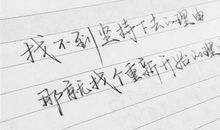 找不到坚持下去的理由
那就找个重新开始的理